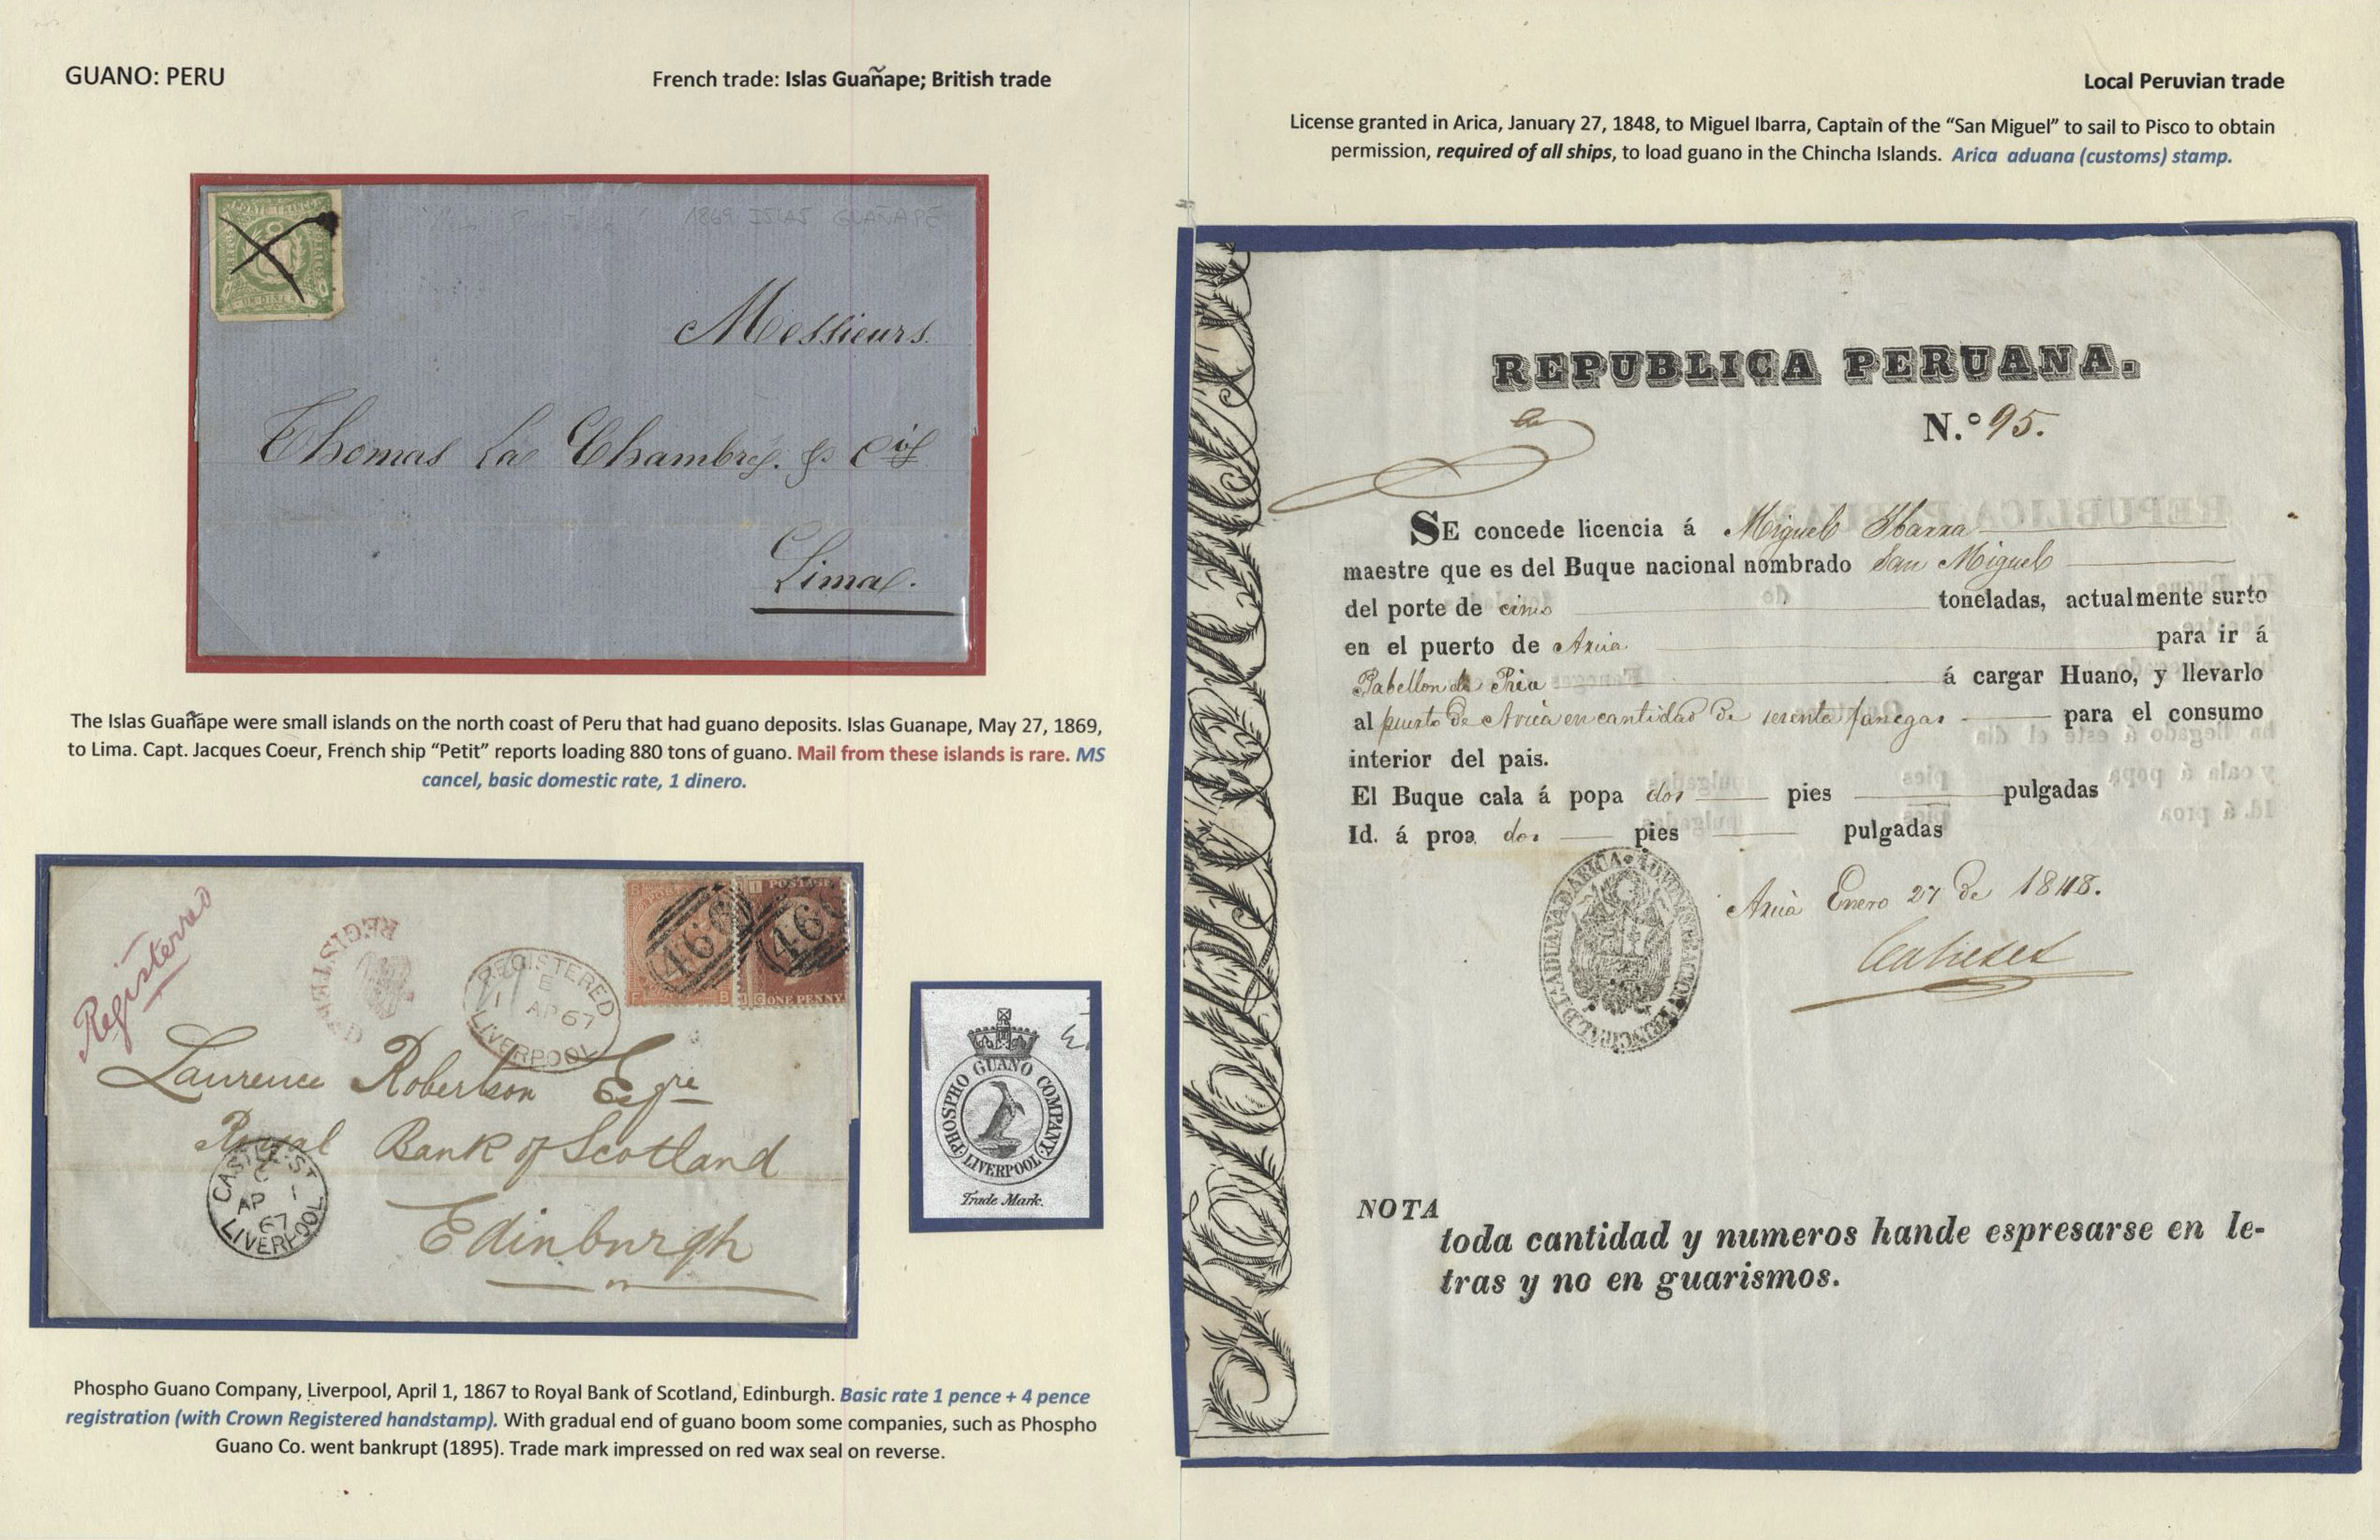 GUANO: PERU
French trade: Islas Guañape; British trade
1869 ISLAS GUAÑAPE
PORTE FRANCO
UN DINERO
Messieurs.
Thomas La Chambre. & Cie
Lima.
The Islas Guañape were small islands on the north coast of Peru that had guano deposits. Islas Guanape, May 27, 1869,
to Lima. Capt. Jacques Coeur, French ship “Petit” reports loading 880 tons of guano. Mail from these islands is rare. MS
cancel, basic domestic rate, 1 dinero.
Registerred
REGISTERED
REGISTERED
E
1 AP 67
LIVERPOOL
466
466
POSTAGE
ONE PENNY
Laurence Robertson Esqre
Royal Bank of Scotland
Edinburgh
CASTLE-ST
C
AP 1
67
LIVERPOOL
PHOSPHO GUANO COMPANY
LIVERPOOL
Trade Mark.
Phospho Guano Company, Liverpool, April 1, 1867 to Royal Bank of Scotland, Edinburgh. Basic rate 1 pence + 4 pence
registration (with Crown Registered handstamp). With gradual end of guano boom some companies, such as Phospho
Guano Co. went bankrupt (1895). Trade mark impressed on red wax seal on reverse.
Local Peruvian trade
License granted in Arica, January 27, 1848, to Miguel Ibarra, Captain of the “San Miguel” to sail to Pisco to obtain
permission, required of all ships, to load guano in the Chincha Islands. Arica aduana (customs) stamp.
REPUBLICA PERUANA.
N.º 95.
SE concede licencia á Miguel Ibarra
maestre que es del Buque nacional nombrado San Miguel
del porte de cinco toneladas, actualmente surto
en el puerto de Arica para ir á
Pabellon de Pica á cargar Huano, y llevarlo
al puerto de Arica en cantidad de sesenta fanegas para el consumo
interior del pais.
El Buque cala á popa dos pies pulgadas
Id. á proa dos pies pulgadas
ADMINISTRACION PRINCIPAL DE LA ADUANA DE ARICA
Arica Enero 27 de 1848.
NOTA
toda cantidad y numeros hande espresarse en le-
tras y no en guarismos.